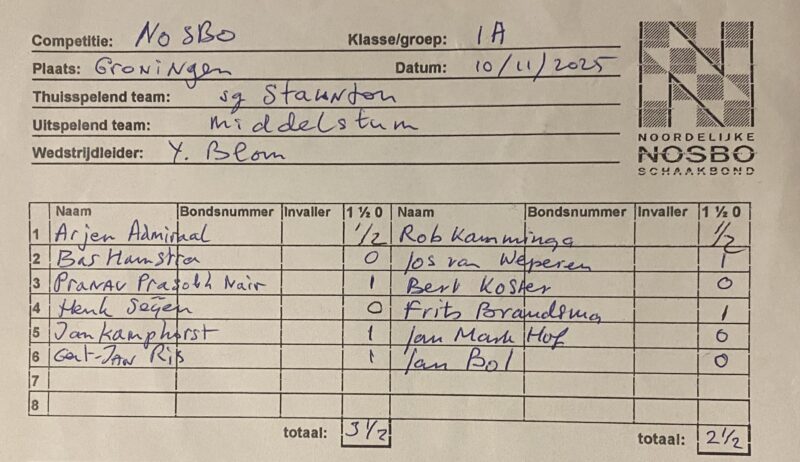 Competitie: NoSBo Klasse/groep: 1A
Plaats: Groningen Datum: 10/11/2025
Thuisspelend team: sg Staunton
Uitspelend team: Middelstum
Wedstrijdleider: Y. Blom
NOORDELIJKE
NOSBO
SCHAAKBOND
Naam Bondsnummer Invaller 1 ½ 0 Naam Bondsnummer Invaller 1 ½ 0
1 Arjen Admiraal 1/2 Rob Kamminga 1/2
2 Bas Hamstra 0 Jos van Weperen 1
3 Pranav Prasobh Nair 1 Bert Koster 0
4 Henk 0 Frits Brandsma 1
5 Jan Kamphorst 1 Jan Mark Hof 0
6 Gert-Jan Ris 1 Jan Bol 0
7
8
totaal: 3 1/2 totaal: 2 1/2